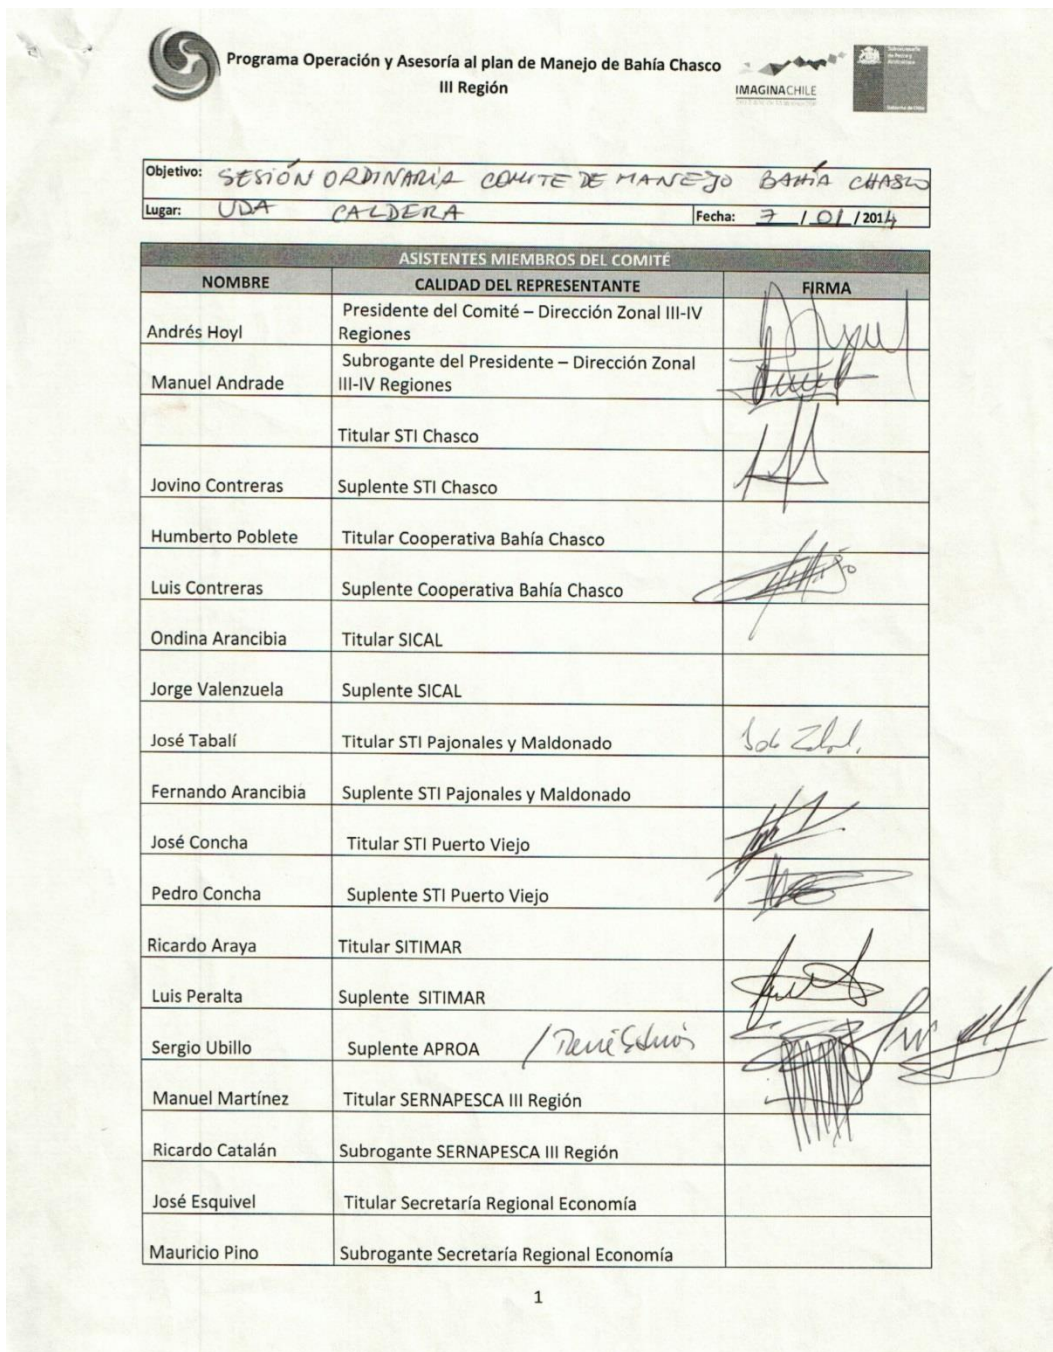 Programa Operación y Asesoría al plan de Manejo de Bahía Chasco
III Región
IMAGINACHILE
Objetivo: SESIÓN ORDINARIA COMITE DE MANEJO BAHÍA CHASCO
Lugar: UDA CALDERA Fecha: 7 / 01 / 2014
ASISTENTES MIEMBROS DEL COMITÉ
NOMBRE CALIDAD DEL REPRESENTANTE FIRMA
Andrés Hoyl Presidente del Comité – Dirección Zonal III-IV
Regiones
Manuel Andrade Subrogante del Presidente – Dirección Zonal
III-IV Regiones
Titular STI Chasco
Jovino Contreras Suplente STI Chasco
Humberto Poblete Titular Cooperativa Bahía Chasco
Luis Contreras Suplente Cooperativa Bahía Chasco
Ondina Arancibia Titular SICAL
Jorge Valenzuela Suplente SICAL
José Tabalí Titular STI Pajonales y Maldonado
Fernando Arancibia Suplente STI Pajonales y Maldonado
José Concha Titular STI Puerto Viejo
Pedro Concha Suplente STI Puerto Viejo
Ricardo Araya Titular SITIMAR
Luis Peralta Suplente SITIMAR
Sergio Ubillo Suplente APROA / René
Manuel Martínez Titular SERNAPESCA III Región
Ricardo Catalán Subrogante SERNAPESCA III Región
José Esquivel Titular Secretaría Regional Economía
Mauricio Pino Subrogante Secretaría Regional Economía
1